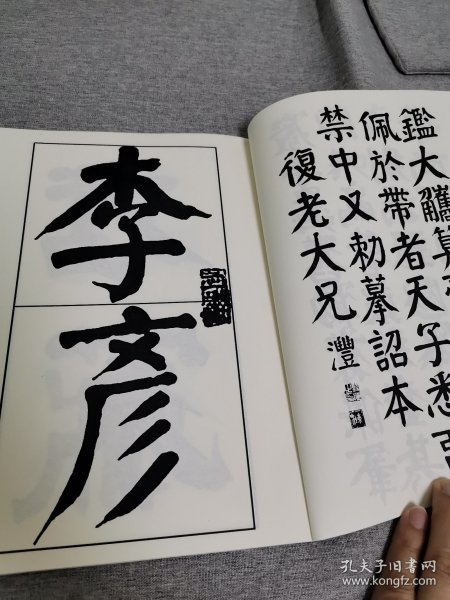 李
彦
鑑大
佩於帶者天子悉
禁中又勅摹詔本
復老大兄 灃
孔夫子旧书网
www.kongfz.com